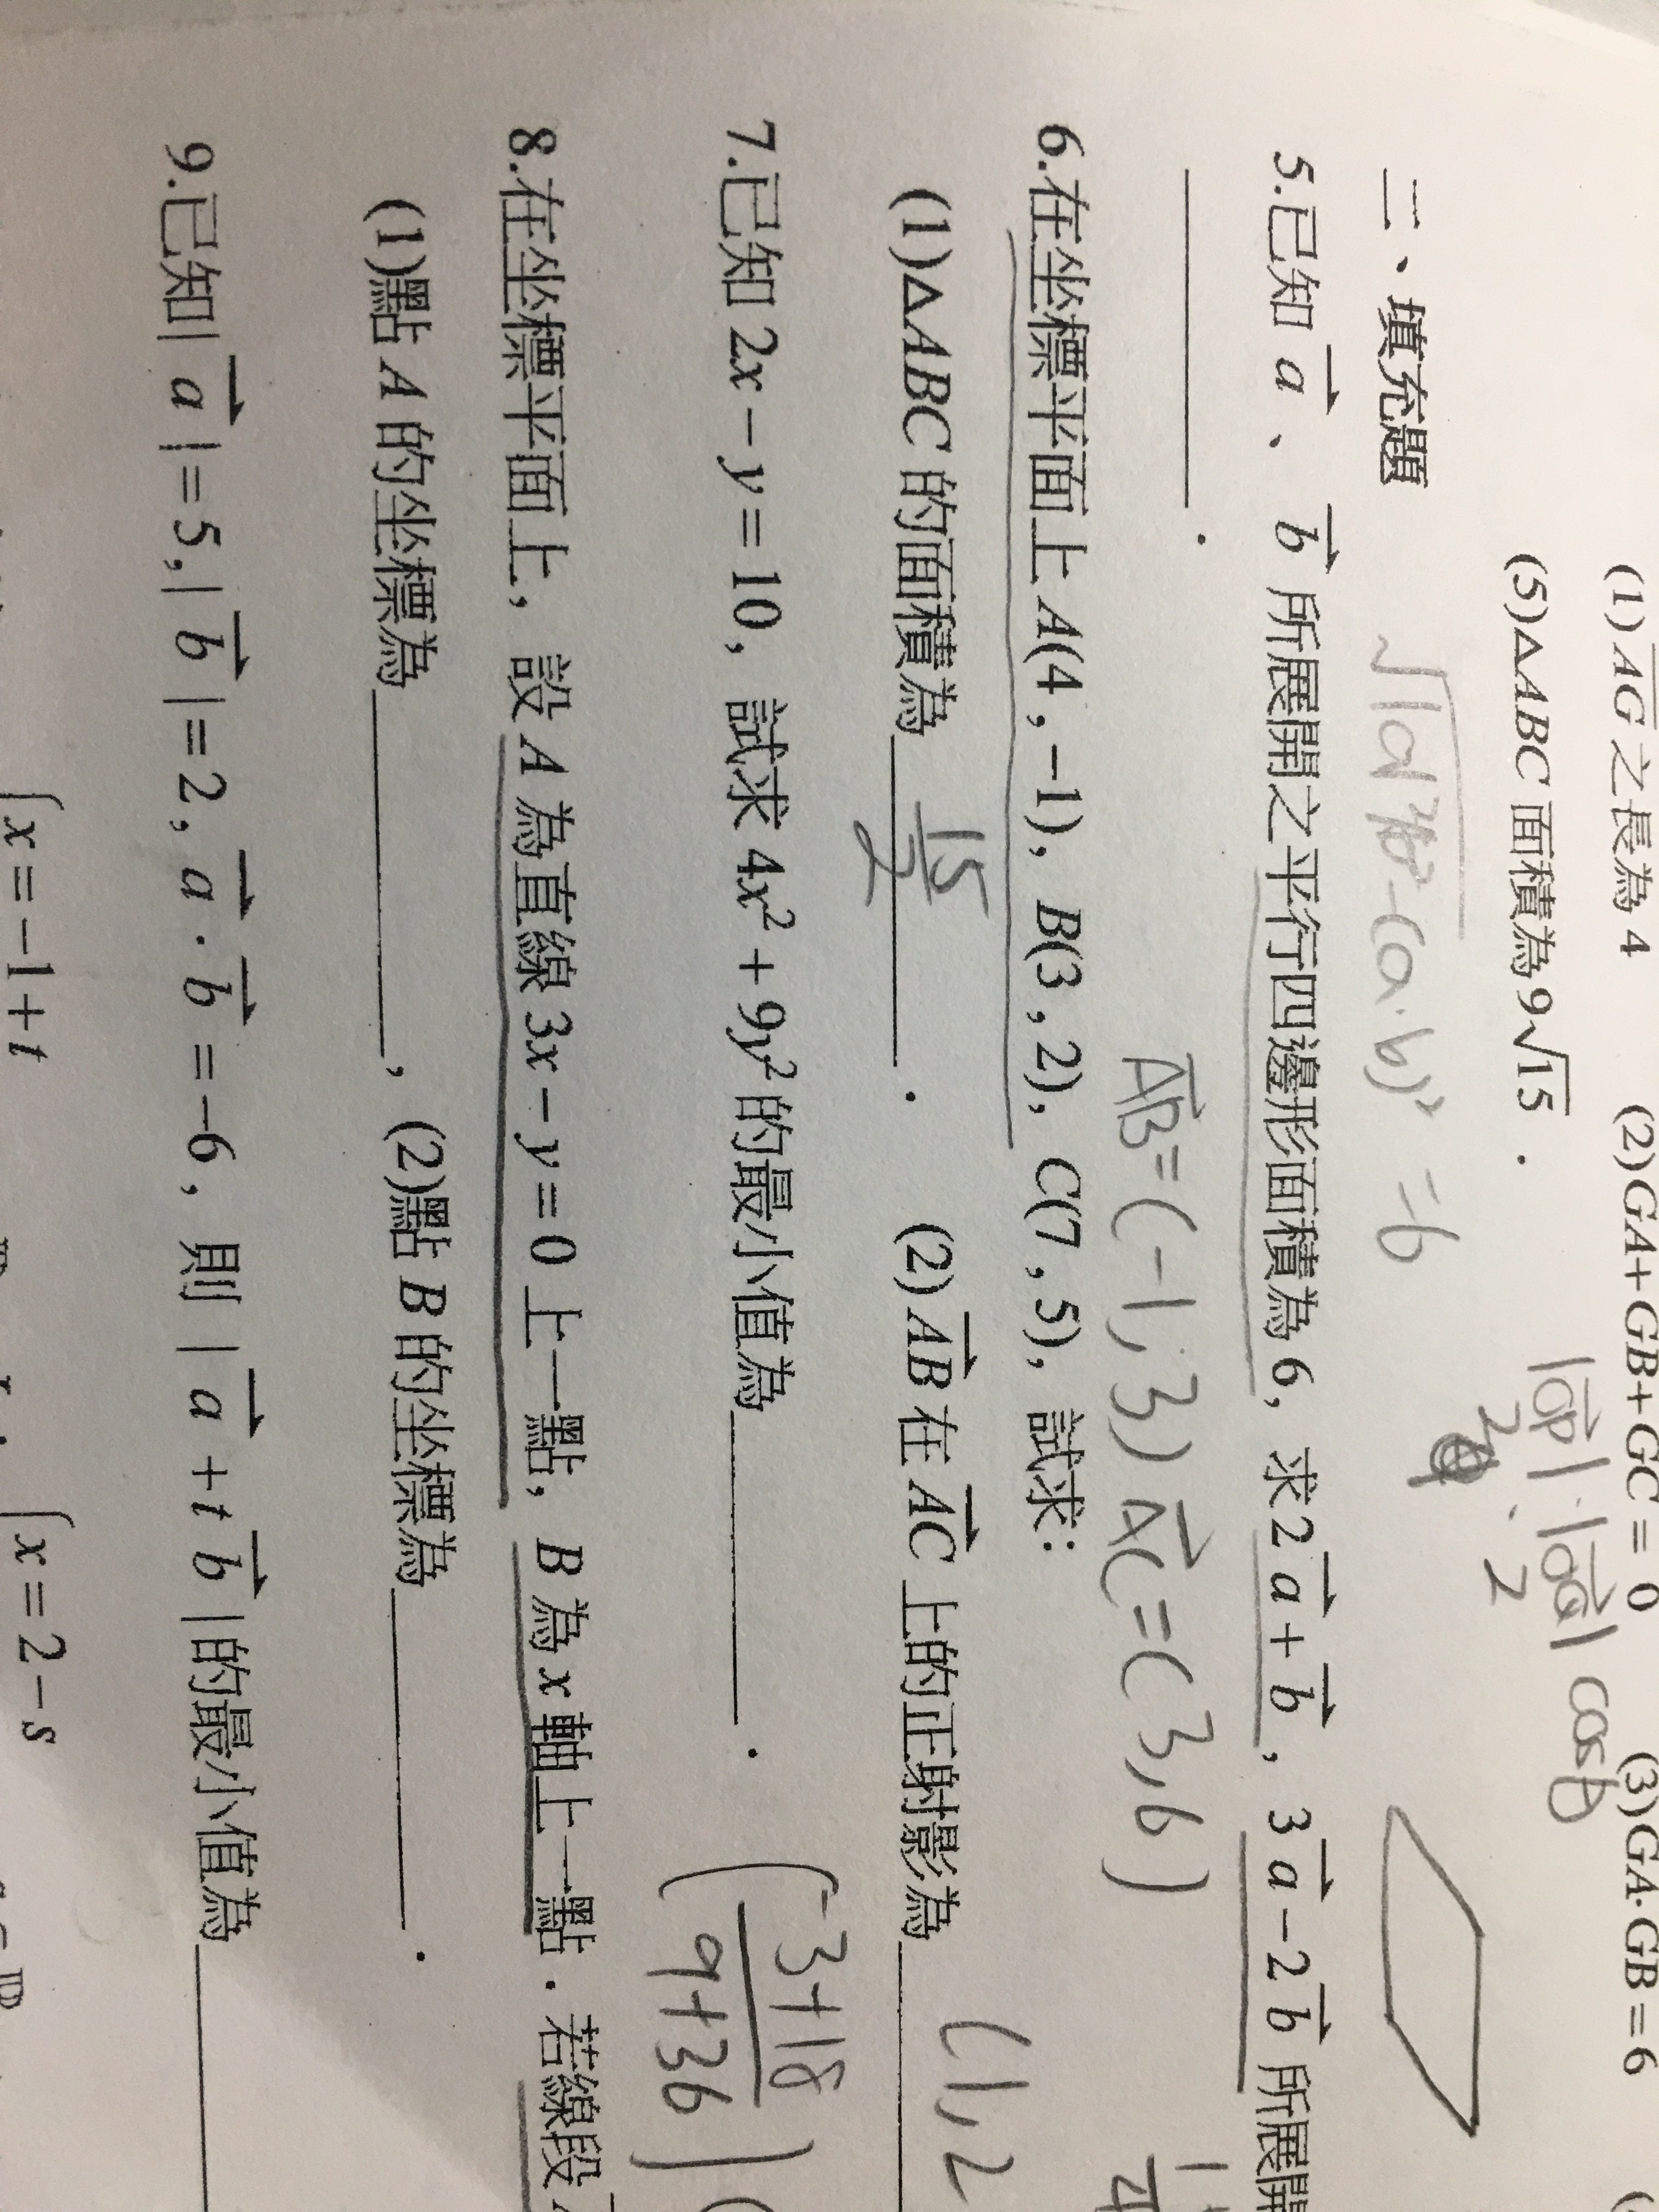 (1) AG 之長為 4 (2)GA+GB+GC = 0 (3)GA·GB = 6
(5)△ABC 面積為 9√15 .
|OP|·|OQ| cosθ
2 · 2
二、填充題
=6
5.已知 a、b 所展開之平行四邊形面積為 6, 求 2a + b, 3a − 2b 所展開
AB=(-1,3) AC=(3,6)
6.在坐標平面上 A(4 , −1), B(3 , 2), C(7 , 5), 試求:
(1)△ABC 的面積為 15/2 . (2) AB 在 AC 上的正射影為 (1,2
(-3+18/9+36)
7.已知 2x − y = 10, 試求 4x² + 9y² 的最小值為 .
8.在坐標平面上, 設 A 為直線 3x − y = 0 上一點, B 為 x 軸上一點. 若線段
(1)點 A 的坐標為 , (2)點 B 的坐標為 .
9.已知| a | = 5, | b | = 2, a · b = −6, 則 | a + t b |的最小值為
x = −1 + t x = 2 − s